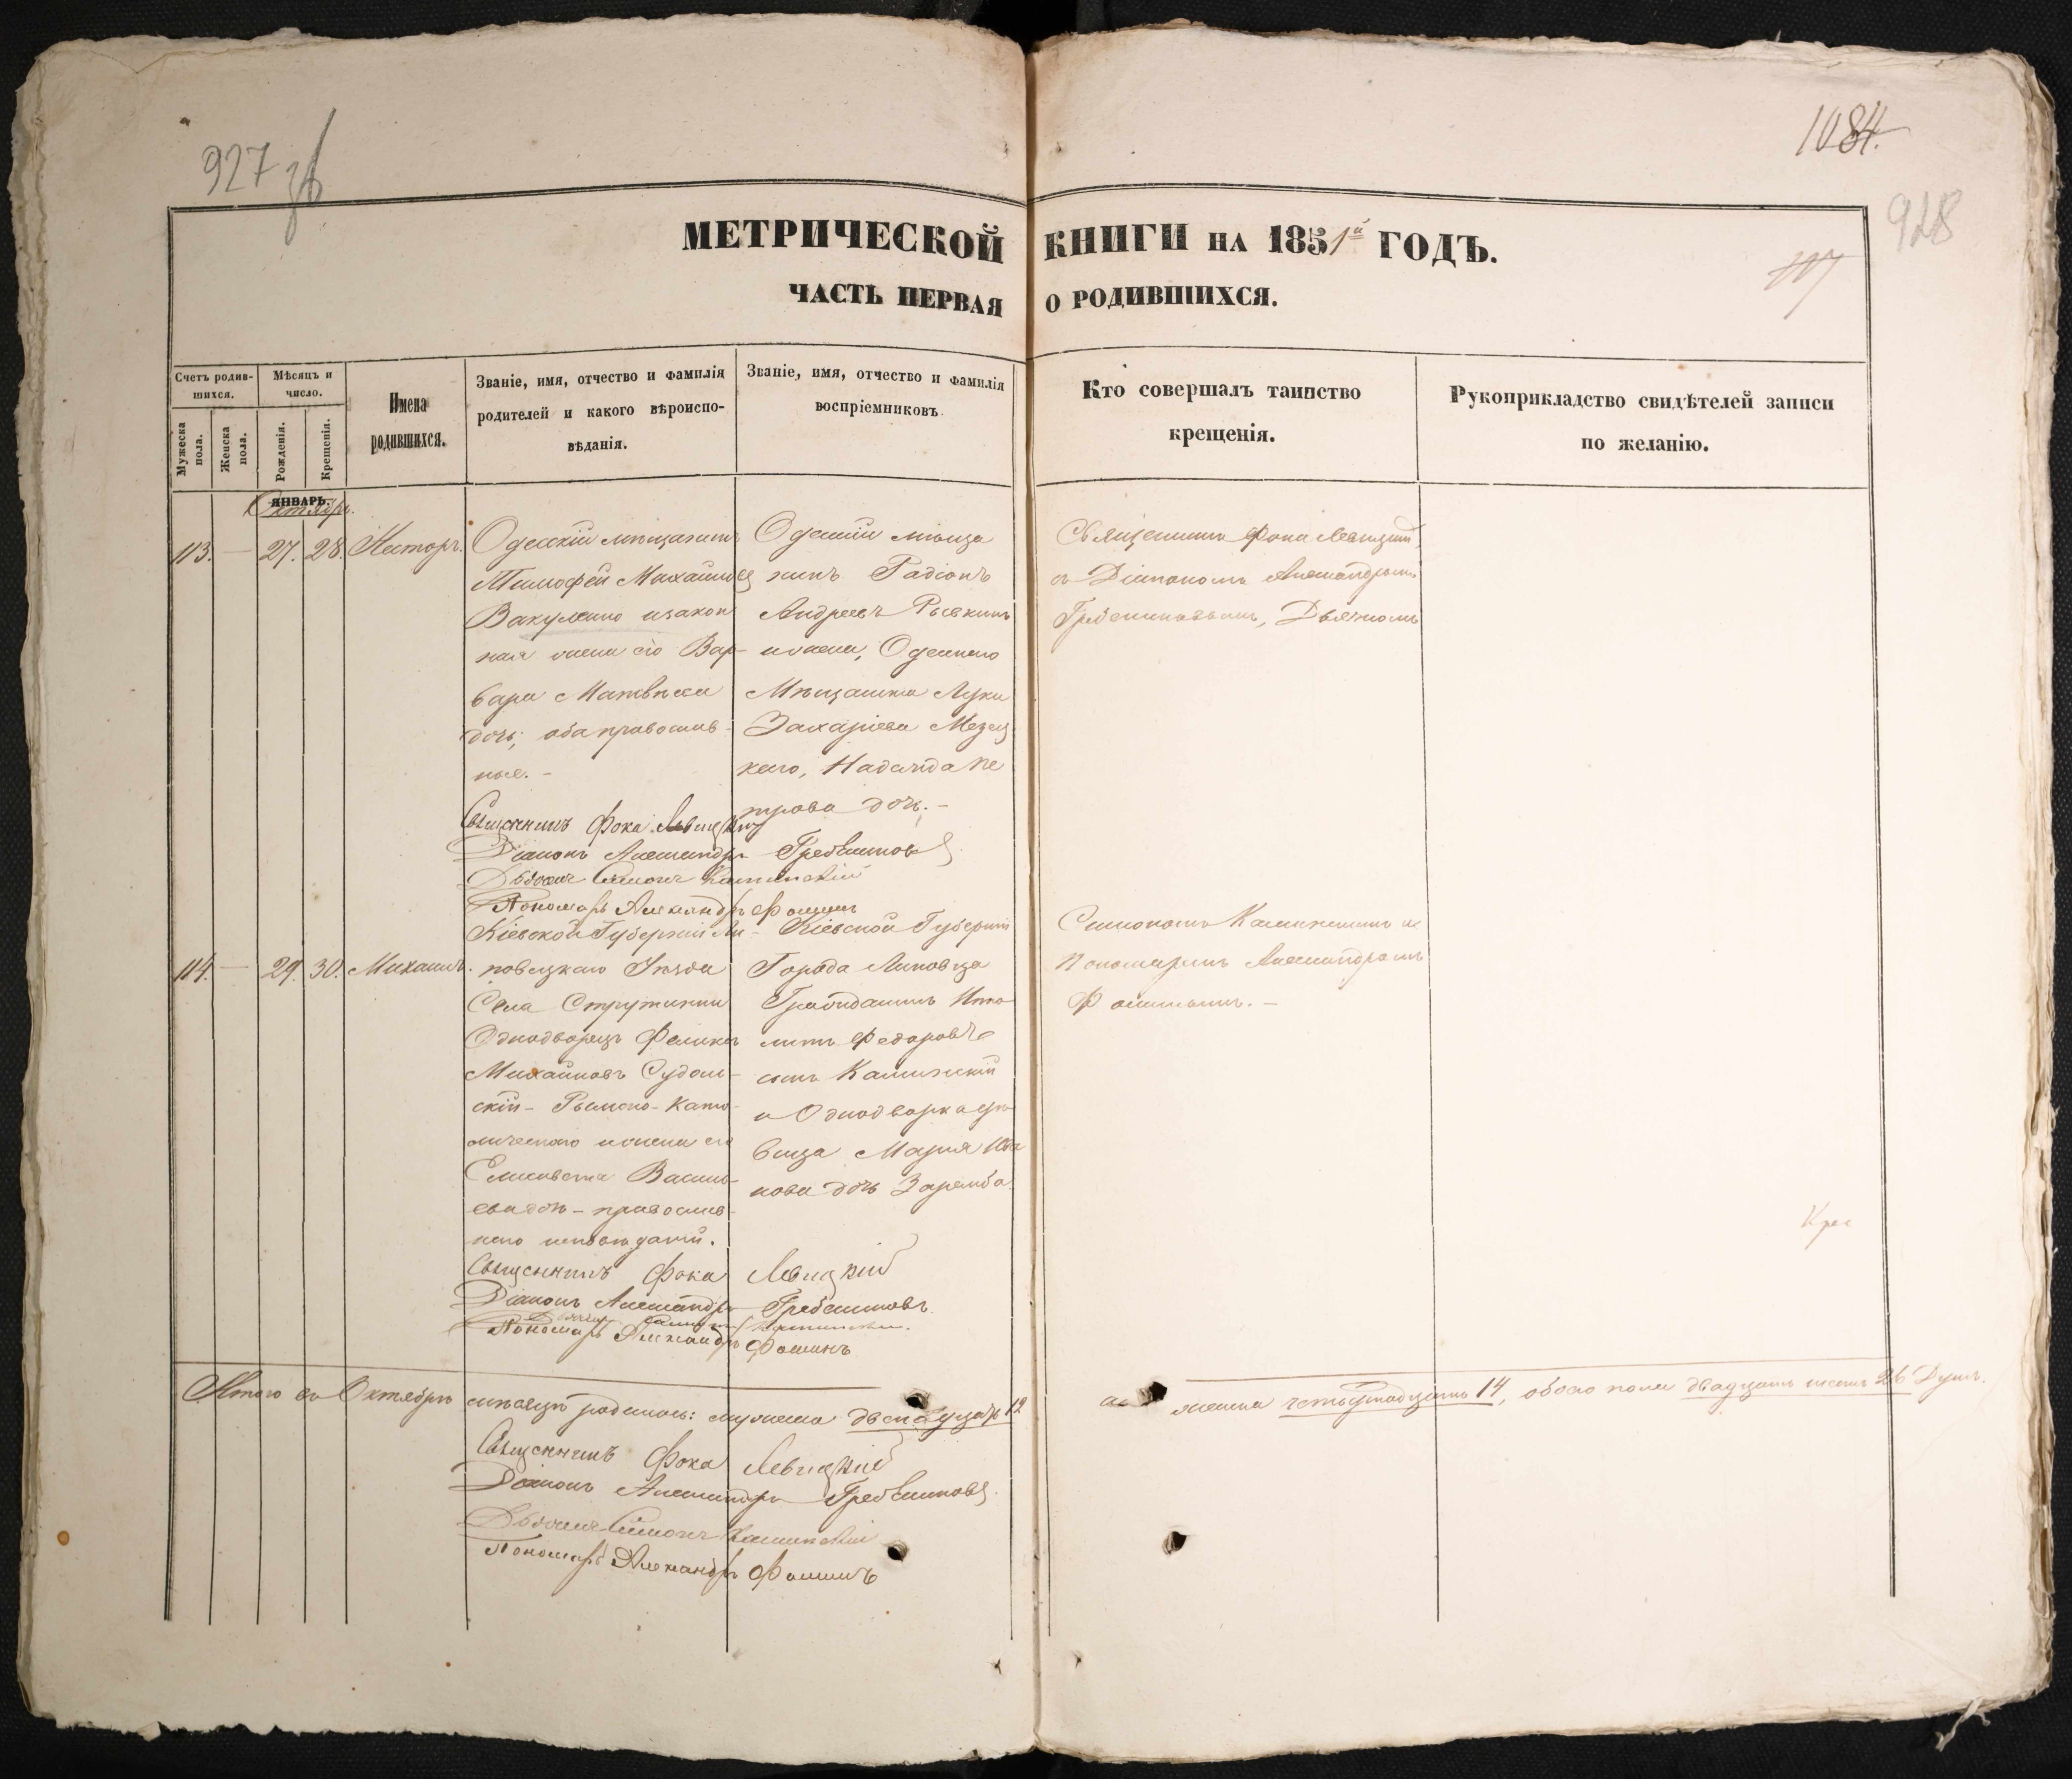 927 зв
1084.
928
МЕТРИЧЕСКОЙ КНИГИ НА 1851й ГОДЪ.
ЧАСТЬ ПЕРВАЯ О РОДИВШИХСЯ.
Счетъ родив-
шихся.
Мужеска пола.
Женска пола.
Мѣсяцъ и
число.
Рожденія.
Крещенія.
Имена
родившихся.
Званіе, имя, отчество и фамилія
родителей и какого вѣроиспо-
вѣданія.
Званіе, имя, отчество и фамилія
воспріемниковъ.
Кто совершалъ таинство
крещенія.
Рукоприкладство свидѣтелей записи
по желанію.
ЯНВАРЬ.
Октябрь.
113. — 27. 28. Несторъ.
Одесскій мѣщанинъ
Тимофей Михайловъ
Вакуленко и закон
ная жена его Вар-
вара Матвѣева
дочь; оба православ-
ные. -
Одесскій мѣща
нинъ Радіонъ
Андреевъ
и жена, Одесскаго
Мѣщанина Луки
Захаріева
каго, Надежда Пе
трова дочь. -
Священникъ Фока Левицкій,
съ Діакономъ Александромъ
Гребенниковымъ, Дьячкомъ
Священникъ Фока Левицкій
Діаконъ Александръ Гребенниковъ
Дьячокъ Симонъ Калинскій
Пономарь Александръ Фоминъ
114. — 29. 30. Михаилъ.
Кіевской Губерніи Ли-
повецкаго Уѣзда
Села Стружинки
Однодворецъ Феликсъ
Михайловъ Судоль-
скій - Римско-Като-
лическаго и жена его
Елисавета Василь-
ева дочь - православ-
наго исповѣданій.
Кіевской Губерніи
Города Липовца
Гражданинъ Ипо-
литъ Федоровъ
сынъ
и Однодворка дѣ-
вица Марія Ива
нова дочь Заремба.
Симономъ Калинскимъ и
Пономаремъ Александромъ
Фоминымъ. -
Священникъ Фока Левицкій
Діаконъ Александръ Гребенниковъ.
Пономарь Александръ Фоминъ
Итого въ Октябрѣ мѣсяцѣ родилось: мужеска двѣнадцать 12
женска четырнадцать 14, обоего пола двадцать шесть 26 Душъ.
Священникъ Фока Левицкій
Діаконъ Александръ Гребенниковъ.
Дьячокъ Симонъ Калинскій
Пономарь Александръ Фоминъ